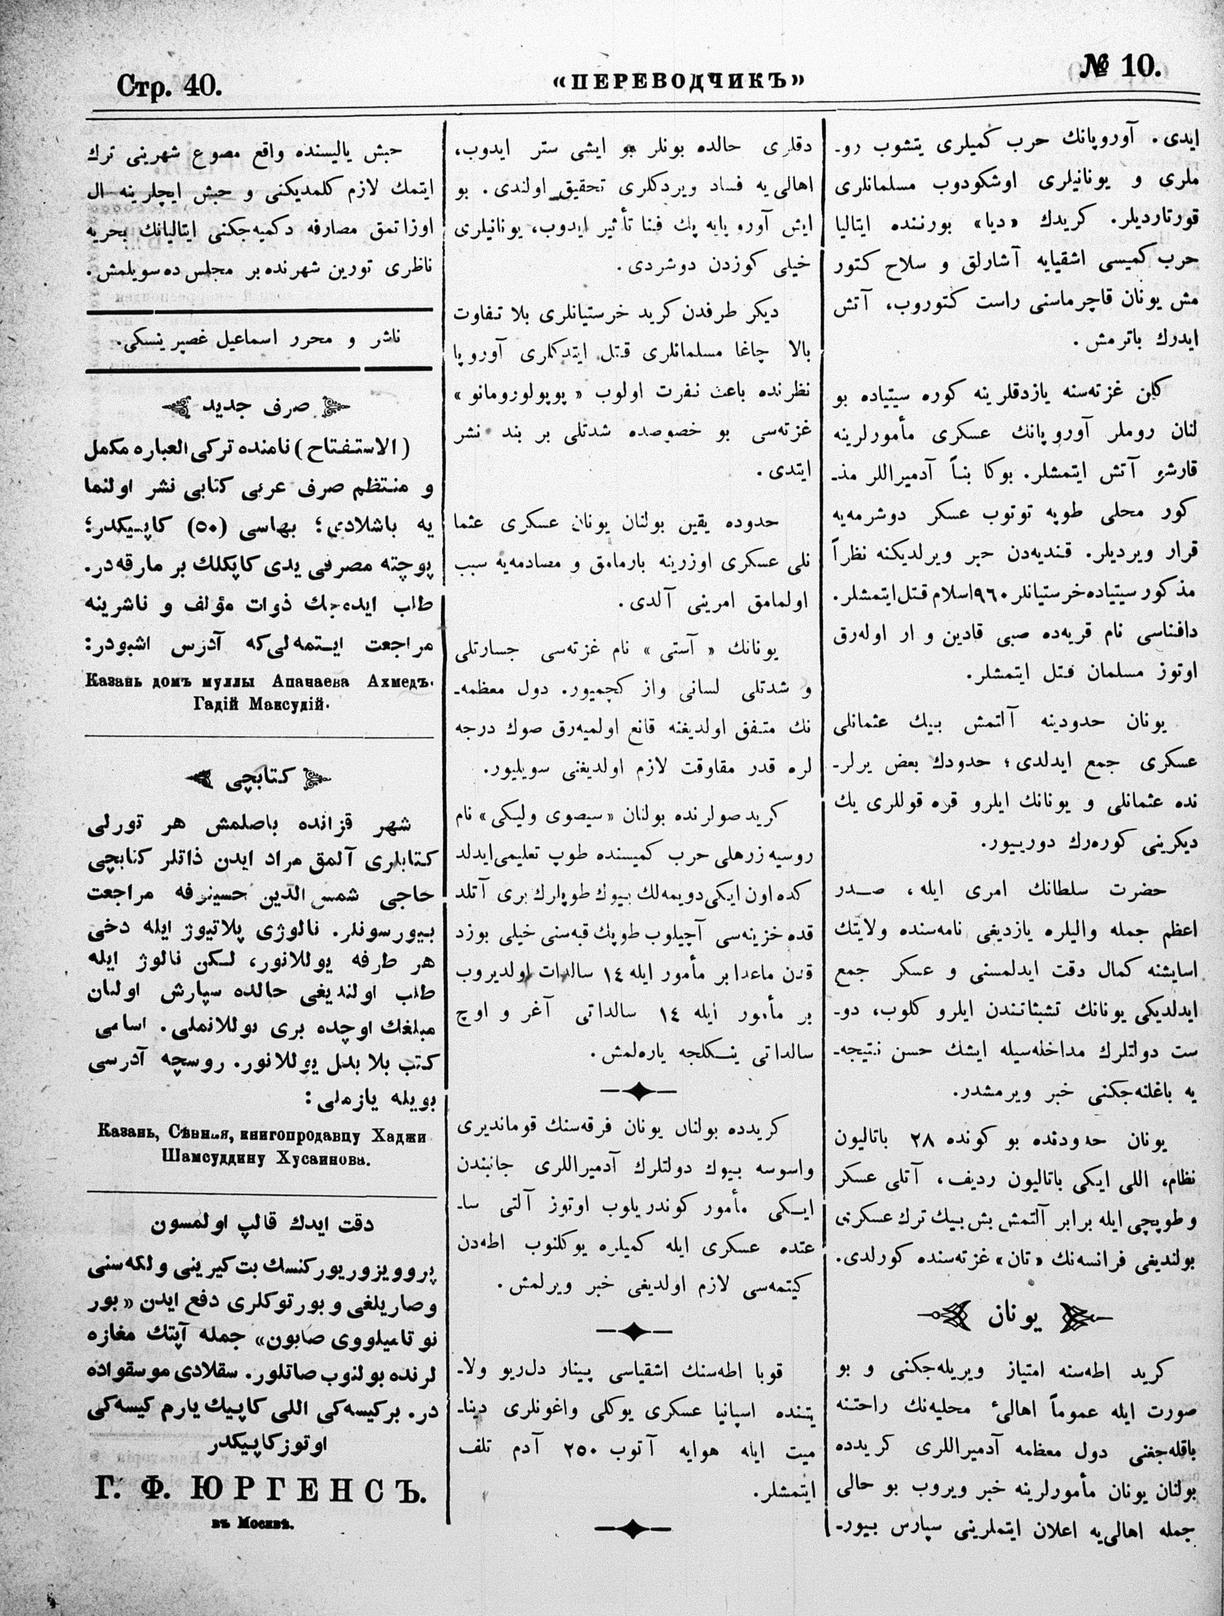 Стр. 40.
«ПЕРЕВОДЧИКЪ»
№ 10.
ایدی. آوروپانك حرب كمیلری یتشوب رو-
ملری و یونانیلری اوشكودوب مسلمانلری
قورتاردیلر. كریدك «دیا» بورننده ایتالیا
حرب كمیسی اشقیایه آشارلق و سلاح كتور
مش یونان قاچرماسنی راست كتوروب، آتش
ایدرك باترمش.
كلن غزته‌سنه یازدقلرینه كوره سیتیاده بو
لنان روملر آوروپانك عسكری مأمورلرینه
قارشو آتش ایتمشلر. بوكا بناً آدمیراللر مذ-
كور محلی طوپه توتوب عسكر دوشرمه‌یه
قرار ویردیلر. قندیه‌دن خبر ویرلدیكنه نظراً
مذكور سیتیاده خرستیانلر ٩٦٠ اسلام قتل ایتمشلر.
دافناسی نام قریه‌ده صبی قادین و ار اوله‌رق
اوتوز مسلمان قتل ایتمشلر.
یونان حدودینه آلتمش بیك عثمانلی
عسكری جمع ایدلدی؛ حدودك بعض یرلر-
نده عثمانلی و یونانك ایلرو قره قوللری یك
دیكرینی كوره‌رك دوریبور.
حضرت سلطانك امری ایله، صدر
اعظم جمله والیلره یازدیغی نامه‌سنده ولایتك
اسایشنه كمال دقت ایدلمسنی و عسكر جمع
ایدلدیكی یونانك تشبثاتندن ایلرو كلوب، دو-
ست دولتلرك مداخله‌سیله ایشك حسن نتیجه-
یه باغلنه‌جكنی خبر ویرمشدر.
یونان حدودنده بو كونده ٢٨ باتالیون
نظام، اللی ایكی باتالیون ردیف، آتلی عسكر
و طوپچی ایله برابر آلتمش بش بیك ترك عسكری
بولندیغی فرانسه‌نك «تان» غزته‌سنده كورلدی.
یونان
كرید اطه‌سنه امتیاز ویریله‌جكنی و بو
صورت ایله عموماً اهالیٔ محلیه‌نك راحتنه
باقله‌جغنی دول معظمه آدمیراللری كریدده
بولنان یونان مأمورلرینه خبر ویروب بو حالی
جمله اهالی‌یه اعلان ایتملرینی سپارس بیور-
دقلری حالده بونلر بو ایشی ستر ایدوب،
اهالی‌یه فساد ویردكلری تحقیق اولندی. بو
ایش آوروپایه پك فنا تأثیر ایدوب، یونانیلری
خیلی كوزدن دوشردی.
دیكر طرفدن كرید خرستیانلری بلا تفاوت
بالا چاغا مسلمانلری قتل ایتدكلری آوروپا
نظرنده باعث نفرت اولوب «پوپولورومانو»
غزته‌سی بو خصوصده شدتلی بر بند نشر
ایتدی.
حدوده یقین بولنان یونان عسكری عثما
نلی عسكری اوزرینه بارمامق و مصادمه‌یه سبب
اولمامق امرینی آلدی.
یونانك «آستی» نام غزته‌سی جسارتلی
و شدتلی لسانی واز كچمیور. دول معظمه-
نك متفق اولدیغنه قانع اولمیه‌رق صوك درجه
لره قدر مقاوقت لازم اولدیغنی سویلیور.
كرید صولرنده بولنان «سیصوی ولیكی» نام
روسیه زرهلی حرب كمیسنده طوپ تعلیمی ایدلد
كده اون ایكی دویمه‌لك بیوك طوپلرك بری آتلد
قده خزینه‌سی آچیلوب طوپك قبه‌سنی خیلی بوزد
قدن ماعدا بر مأمور ایله ١٤ سالدات اولدیروب
بر مأمور ایله ١٤ سالداتی آغر و اوچ
سالداتی ینكلجه یاره‌لمش.
كریدده بولنان یونان فرقه‌سنك قوماندیری
واسوسه بیوك دولتلرك آدمیراللری جانبندن
ایكی مأمور كوندریلوب اوتوز آلتی سا-
عتده عسكری ایله كمیلره یوكلنوب اطه‌دن
كیتمه‌سی لازم اولدیغی خبر ویرلمش.
قوبا اطه‌سنك اشقیاسی پینار دل‌ریو ولا-
یتنده اسپانیا عسكری یوكلی واغونلری دینا-
میت ایله هوایه آتوب ٢٥٠ آدم تلف
ایتمشلر.
حبش یالیسنده واقع مصوع شهرینی ترك
ایتمك لازم كلمدیكنی و حبش ایچلرینه ال
اوزاتمق مصارفه دكمیه‌جكنی ایتالیانك بحریه
ناظری تورین شهرنده بر مجلس ده سویلمش.
ناشر و محرر اسماعیل غصپرینسكی.
صرف جدید
(الاستفتاح) نامنده تركی العباره مكمل
و منتظم صرف عربی كتابی نشر اولنما
یه باشلادی؛ بهاسی (٥٠) كاپیكدر؛
پوچته مصرفی یدی كاپكلك بر مارقه‌در.
طلب ایده‌جك ذوات مؤلف و ناشرینه
مراجعت ایتمه‌لی‌كه آدرس اشبودر:
Казань домъ муллы Апанаева Ахмедъ-
Гадій Максудій.
كتابچی
شهر قزانده باصلمش هر تورلی
كتابلری آلمق مراد ایدن ذاتلر كتابچی
حاجی شمس الدین حسینوفه مراجعت
بیورسونلر. نالوژی پلاتیوژ ایله دخی
هر طرفه یوللانور، لكن نالوژ ایله
طلب اولندیغی حالده سپارش اولنان
مبلغك اوچده بری یوللانملی. اسامی
كتب بلا بدل یوللانور. روسچه آدرسی
بویله یازملی:
Казань, Сѣнная, книгопродавцу Хаджи
Шамсуддину Хусаинова.
دقت ایدك قالپ اولمسون
پروویزور یوركنسك بت كیرینی و لكه‌سنی
و صاریلغی و بورتوكلری دفع ایدن «بور
نو تامیلووی صابون» جمله آپتك مغازه
لرنده بولنوب صاتلور. سقلادی موسقواده
در. بر كیسه‌كی اللی كاپیك یارم كیسه‌كی
اوتوز كاپیكدر
Г. Ф. ЮРГЕНСЪ.
въ Москвѣ.